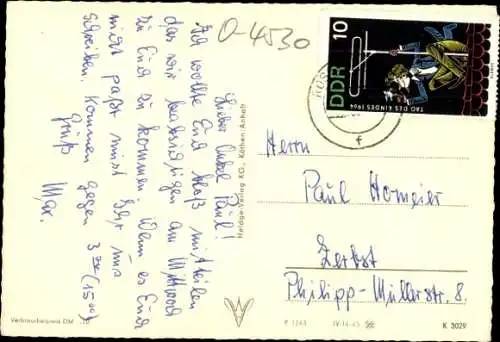 O-4530
Lieber Onkel Paul!
Ich wollte Euch bloß mitteilen
das wir beabsichtigen am Mittwoch
zu Euch zu kommen. Wenn es Euch
nicht paßt müßt Ihr uns
schreiben. Kommen gegen 3 (15
Gruß
Max.
Heldge-Verlag KG., Köthen/Anhalt
DDR 10
TAG DES KINDES 1964
f
Herrn
Paul Homeier
Zerbst
Philipp-Müllerstr. 8.
Verbraucherpreis DM
K 3029